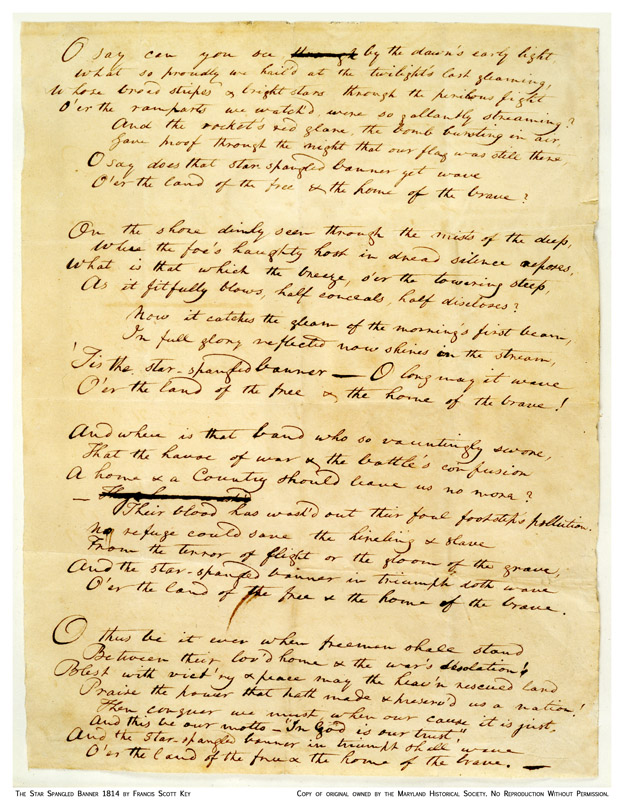 O say can you see ~~through~~ by the dawn's early light
What so proudly we hail'd at the twilight's last gleaming,
Whose broad stripes & bright stars through the perilous fight
O'er the ramparts we watch'd, were so gallantly streaming?
And the rocket's red glare, the bomb bursting in air,
Gave proof through the night that our flag was still there,
O say does that star-spangled banner yet wave
O'er the land of the free & the home of the brave?
On the shore dimly seen through the mists of the deep,
Where the foe's haughty host in dread silence reposes,
What is that which the breeze, o'er the towering steep,
As it fitfully blows, half conceals, half discloses?
Now it catches the gleam of the morning's first beam,
In full glory reflected now shines in the stream,
'Tis the star-spangled banner — O long may it wave
O'er the land of the free & the home of the brave!
And where is that band who so vauntingly swore,
That the havoc of war & the battle's confusion
A home & a Country should leave us no more?
—
Their blood has wash'd out their foul footstep's pollution.
No refuge could save the hireling & slave
From the terror of flight or the gloom of the grave,
And the star-spangled banner in triumph doth wave
O'er the land of the free & the home of the brave.
O thus be it ever when freemen shall stand
Between their lov'd home & the war's desolation!
Blest with vict'ry & peace may the heav'n rescued land
Praise the power that hath made & preserv'd us a nation!
Then conquer we must, when our cause it is just,
And this be our motto - "In God is our trust,"
And the star-spangled banner in triumph shall wave
O'er the land of the free & the home of the brave. —
The Star Spangled Banner 1814 by Francis Scott Key
Copy of original owned by the Maryland Historical Society. No Reproduction Without Permission.